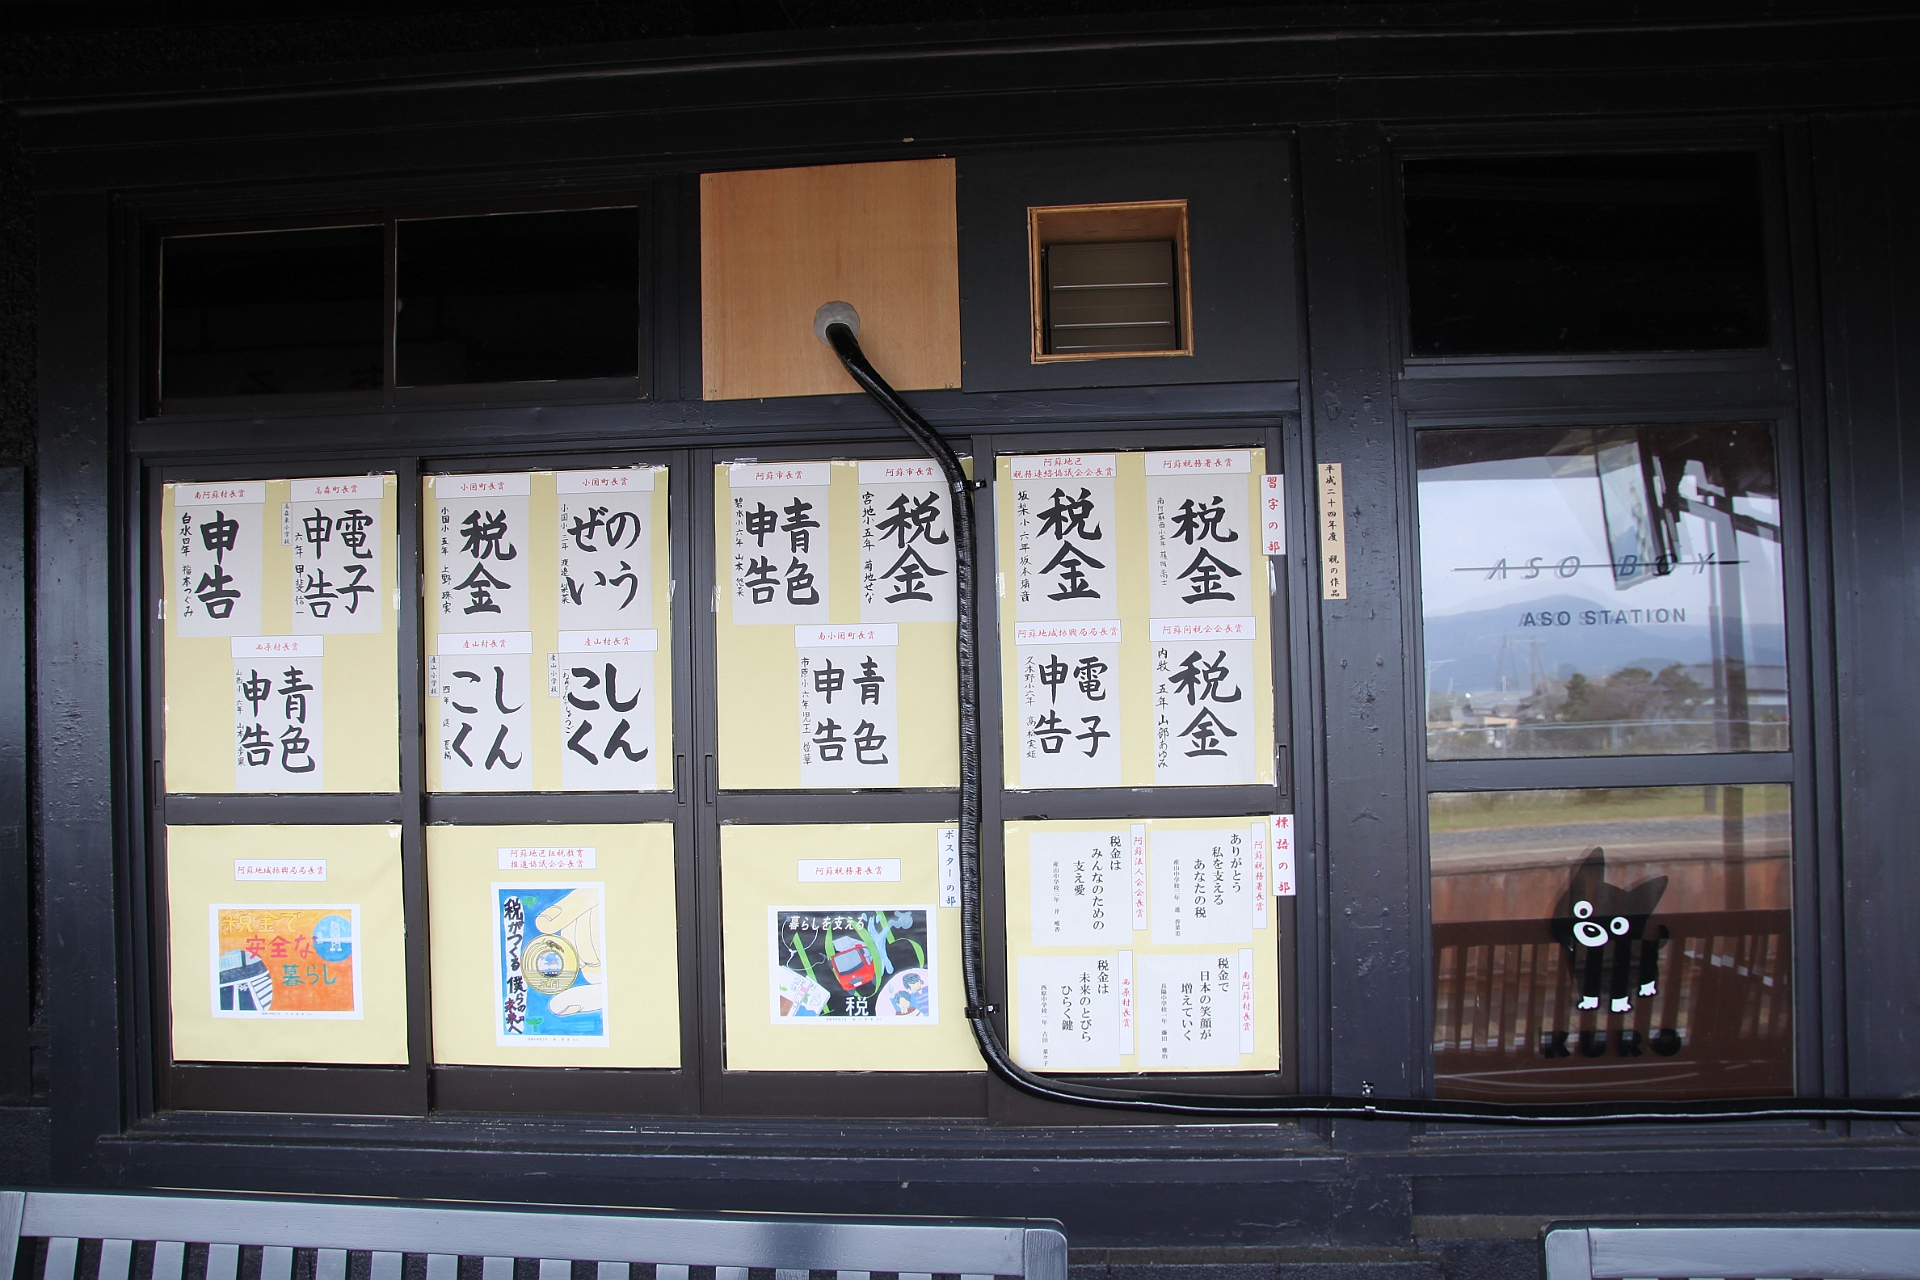 平成二十四年度 税の作品
習字の部
阿蘇税務署長賞
税金
阿蘇地区
税務連絡協議会会長賞
税金
坂梨小 六年
阿蘇間税会会長賞
税金
内牧 五年 山部あゆみ
阿蘇地域振興局局長賞
電子
申告
久木野小六年
阿蘇市長賞
税金
宮地小 五年 菊地せな
阿蘇市長賞
青色
申告
碧水小六年
南小国町長賞
青色
申告
市原小 六年
小国町長賞
のう
ぜい
小国小 三年
小国町長賞
税金
小国小 五年
産山村長賞
しん
こく
産山小学校
産山村長賞
しん
こく
産山小学校
四年
高森町長賞
電子
申告
六年 甲斐信一
南阿蘇村長賞
申告
白水四年 稲本つぐみ
西原村長賞
青色
申告
標語の部
阿蘇税務署長賞
ありがとう
私を支える
あなたの税
阿蘇法人会会長賞
税金は
みんなのための
支え愛
南阿蘇村長賞
税金で
日本の笑顔が
増えていく
西原村長賞
税金は
未来のとびら
ひらく鍵
ポスターの部
阿蘇税務署長賞
暮らしを支える
税
阿蘇地区租税教育
推進協議会会長賞
税がつくる
僕らの
未来へ
阿蘇地域振興局局長賞
税金で
安全な
暮らし
ASO BOY
ASO STATION
KURO